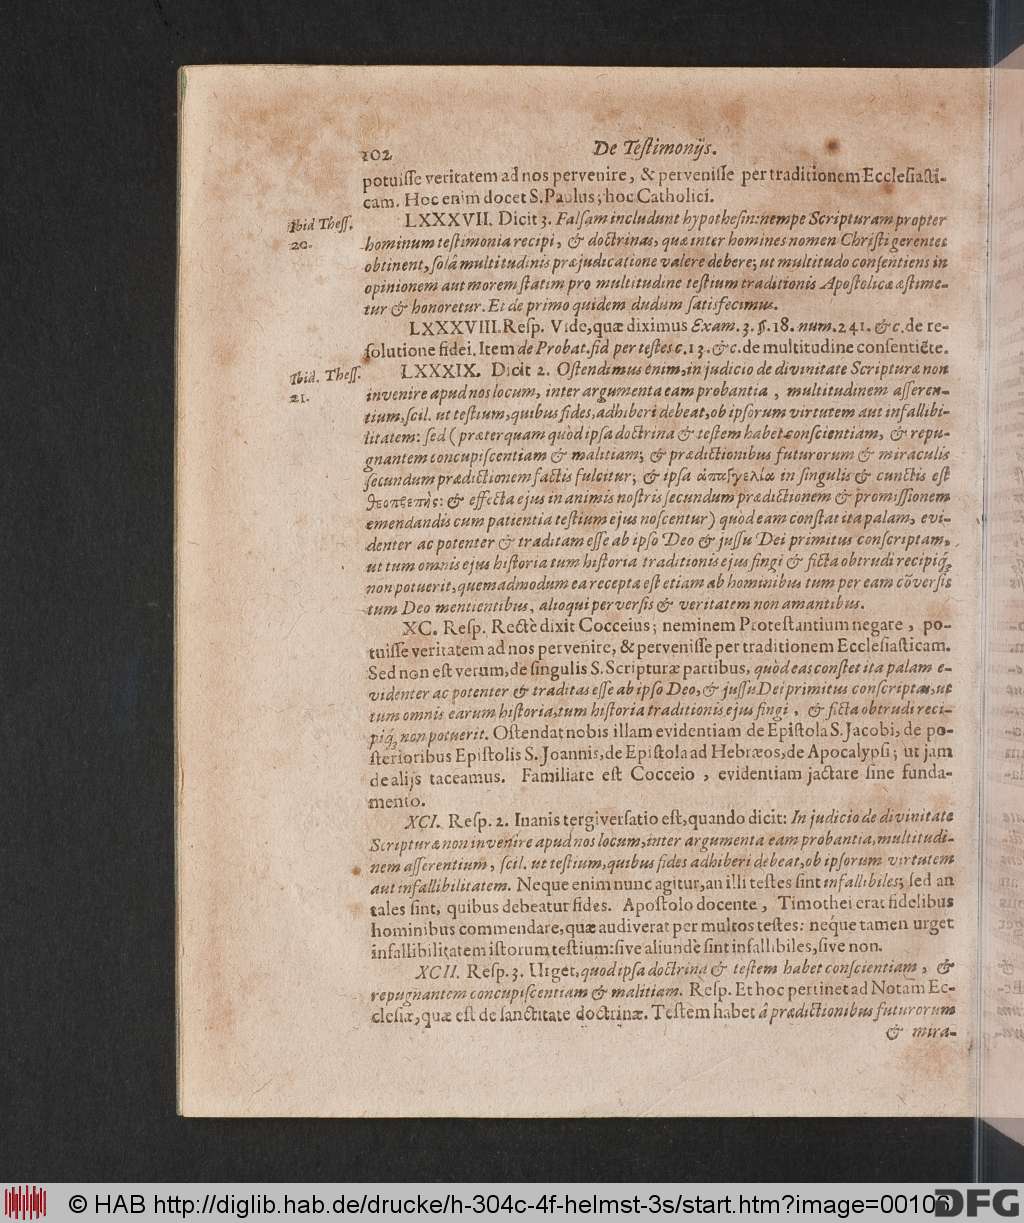 102 De Teſtimonijs.
potuiſſe veritatem ad nos pervenire, & perveniſſe per traditionem Eccleſiaſti-
cam. Hoc enim docet S. Paulus; hoc Catholici.
Ibid Theſſ. 20.
LXXXVII. Dicit 3. Falſam includunt hypotheſin: nempe Scripturam propter
hominum teſtimonia recipi, & doctrinas, quæ inter homines nomen Chriſti gerentes
obtinent, ſolâ multitudinis præjudicatione valere debere; ut multitudo conſentiens in
opinionem aut morem ſtatim pro multitudine teſtium traditionis Apoſtolicæ æſtime-
tur & honoretur. Et de primo quidem dudum ſatisfecimus.
LXXXVIII. Reſp. Vide, quæ diximus Exam. 3. §. 18. num. 241. &c. de re-
ſolutione fidei. Item de Probat. fid per teſtes c. 13. &c. de multitudine conſentiẽte.
Ibid. Theſſ. 21.
LXXXIX. Dicit 2. Oſtendimus enim, in judicio de divinitate Scripturæ non
invenire apud nos locum, inter argumenta eam probantia, multitudinem aſſeren-
tium, ſcil. ut teſtium, quibus fides, adhiberi debeat, ob ipſorum virtutem aut infallibi-
litatem: ſed (præterquam quòd ipſa doctrina & teſtem habet conſcientiam, & repu-
gnantem concupiſcentiam & malitiam; & prædictionibus futurorum & miraculis
ſecundum prædictionem factis fulcitur; & ipſa ἀπαγγελία in ſingulis & cunctis eſt
θεοπρεπὴς: & effecta ejus in animis noſtris ſecundum prædictionem & promiſſionem
emendandis cum patientia teſtium ejus noſcentur) quòd eam conſtat ita palam, evi-
denter ac potenter & traditam eſſe ab ipſo Deo & juſſu Dei primitus conſcriptam,
ut tum omnis ejus hiſtoria tum hiſtoria traditionis ejus fingi & ficta obtrudi recipiq́;
non potuerit, quemadmodum ea recepta eſt etiam ab hominibus tum per eam cõverſis
tum Deo mentientibus, alioqui perverſis & veritatem non amantibus.
XC. Reſp. Rectè dixit Cocceius; neminem Proteſtantium negare, po-
tuiſſe veritatem ad nos pervenire, & perveniſſe per traditionem Eccleſiaſticam.
Sed non eſt verum, de ſingulis S. Scripturæ partibus, quòd eas conſtet ita palam e-
videnter ac potenter & traditas eſſe ab ipſo Deo, & juſſu Dei primitus conſcriptas, ut
tum omnis earum hiſtoria, tum hiſtoria traditionis ejus fingi, & ficta obtrudi reci-
piq́; non potuerit. Oſtendat nobis illam evidentiam de Epiſtola S. Jacobi, de po-
ſterioribus Epiſtolis S. Joannis, de Epiſtola ad Hebræos, de Apocalypſi; ut jam
de alijs taceamus. Familiare eſt Cocceio, evidentiam jactare ſine funda-
mento.
XCI. Reſp. 2. Inanis tergiverſatio eſt, quando dicit: In judicio de divinitate
Scripturæ non invenire apud nos locum, inter argumenta eam probantia, multitudi-
nem aſſerentium, ſcil. ut teſtium, quibus fides adhiberi debeat, ob ipſorum virtutem
aut infallibilitatem. Neque enim nunc agitur, an illi teſtes ſint infallibiles; ſed an
tales ſint, quibus debeatur fides. Apoſtolo docente, Timothei erat fidelibus
hominibus commendare, quæ audiverat per multos teſtes: néque tamen urget
infallibilitatem iſtorum teſtium: ſive aliundè ſint infallibiles, ſive non.
XCII. Reſp. 3. Urget, quod ipſa doctrina & teſtem habet conſcientiam, &
repugnantem concupiſcentiam & malitiam. Reſp. Et hoc pertinet ad Notam Ec-
cleſiæ, quæ eſt de ſanctitate doctrinæ. Teſtem habet â prædictionibus futurorum
& mira-
© HAB http://diglib.hab.de/drucke/h-304c-4f-helmst-3s/start.htm?image=00106
DFG